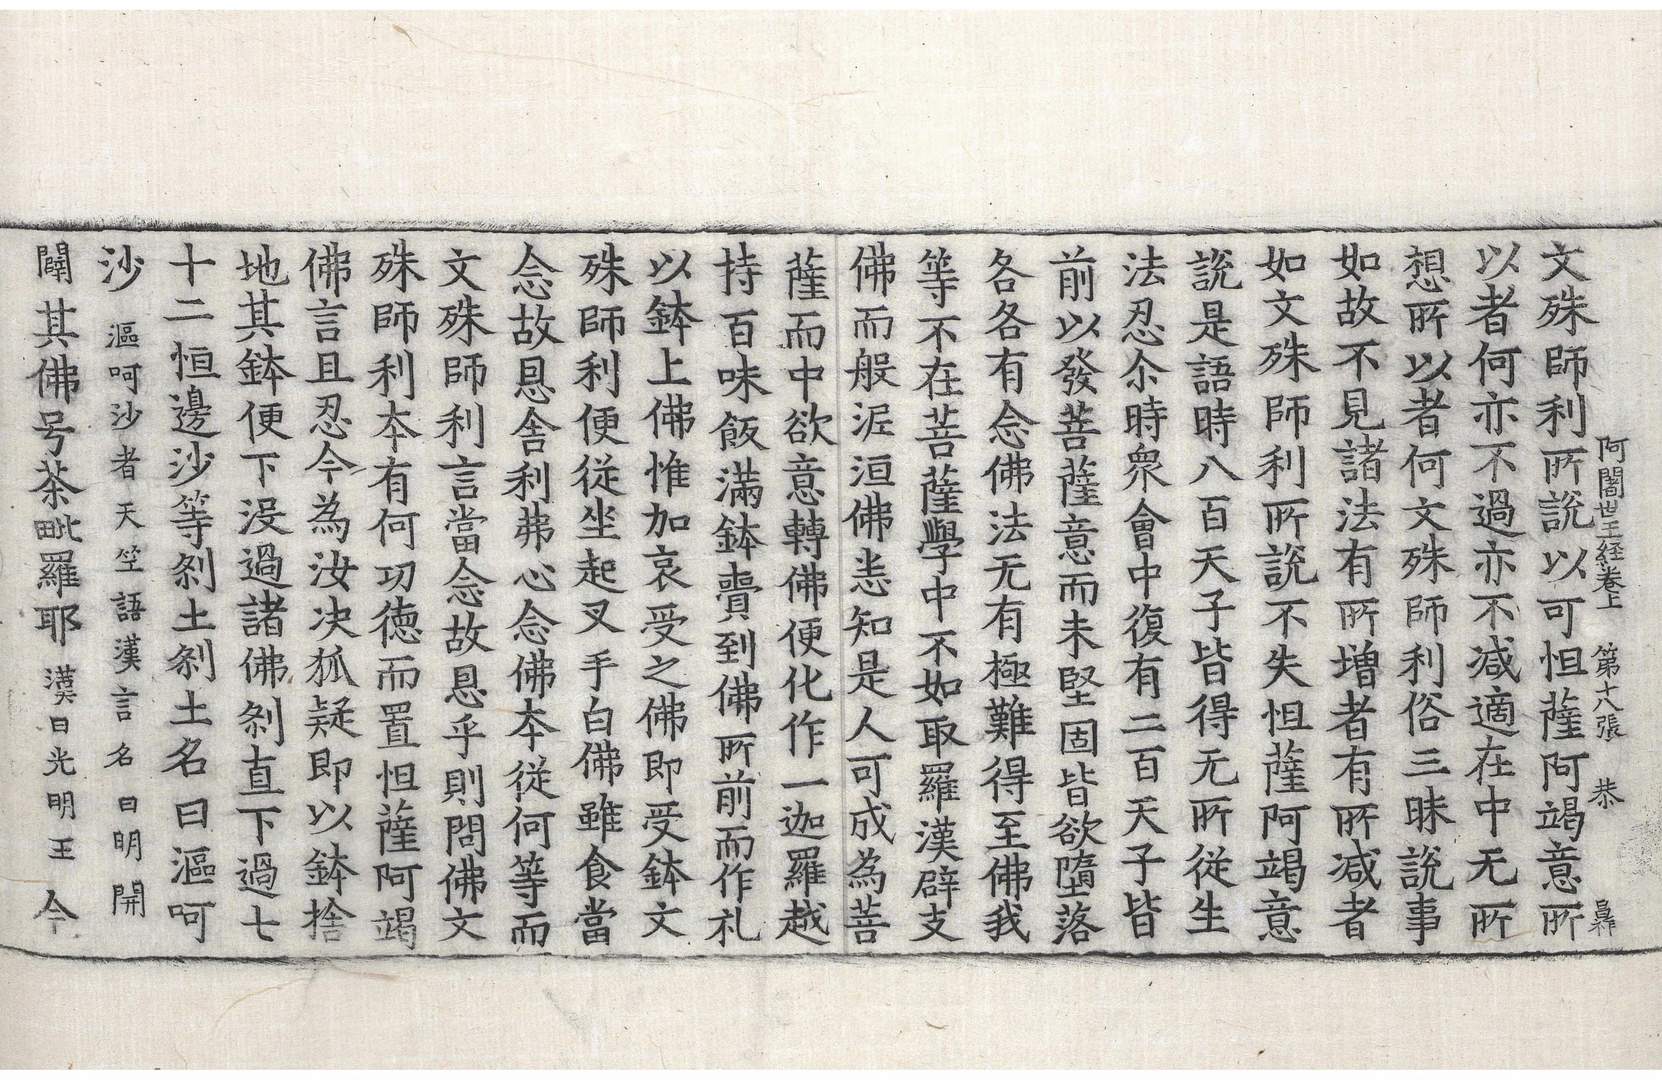 阿闍世王経卷上 第十八張 恭
文殊師利所說以可怛薩阿竭意所
以者何亦不過亦不减適在中无所
想所以者何文殊師利俗三昧說事
如故不見諸法有所增者有所减者
如文殊師利所說不失怛薩阿竭意
說是語時八百天子皆得无所從生
法忍尒時衆會中復有二百天子皆
前以發菩薩意而未堅固皆欲墮落
各各有念佛法无有極難得至佛我
等不在菩薩學中不如取羅漢辟支
佛而般泥洹佛悉知是人可成為菩
薩而中欲意轉佛便化作一迦羅越
持百味飯滿鉢賷到佛所前而作礼
以鉢上佛惟加哀受之佛即受鉢文
殊師利便従坐起叉手白佛雖食當
念故恩舍利弗心念佛本従何等而
文殊師利言當念故恩乎則問佛文
殊師利本有何功徳而置怛薩阿竭
佛言且忍今為汝决狐疑即以鉢捨
地其鉢便下没過諸佛刹直下過七
十二恒邊沙等刹土刹土名曰漚呵
沙 漚呵沙者天竺語漢言名曰明開
闢 其佛号荼毗羅耶 漢曰光明王 今